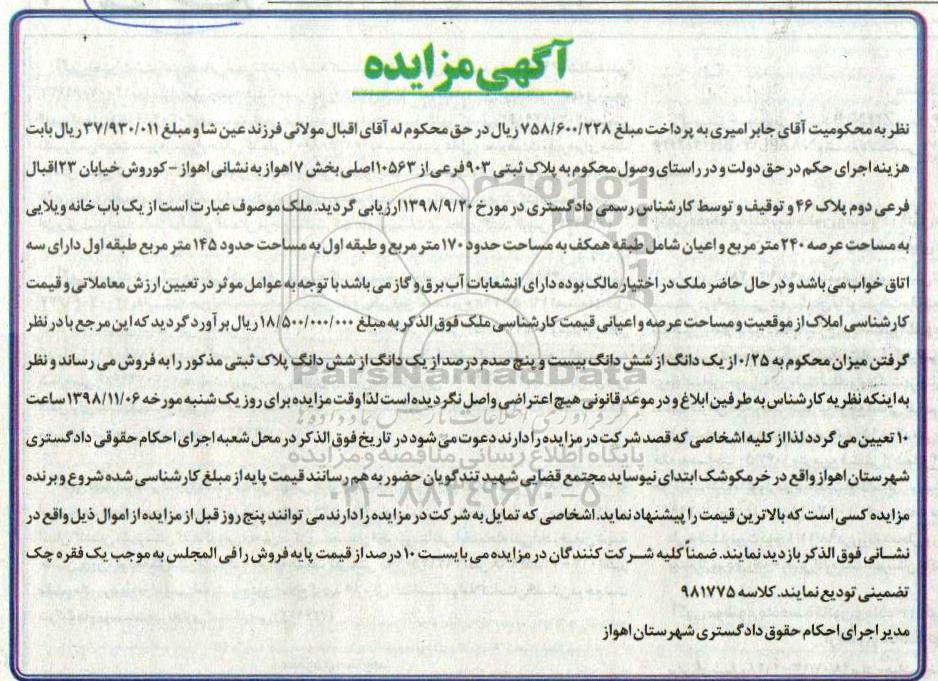 آگهی مزایده
نظر به محکومیت آقای جابر امیری به پرداخت مبلغ ۷۵۸/۶۰۰/۲۲۸ ریال در حق محکوم له آقای اقبال مولائی فرزند عین شا و مبلغ ۳۷/۹۳۰/۰۱۱ ریال بابت
هزینه اجرای حکم در حق دولت و در راستای وصول محکوم به پلاک ثبتی ۹۰۳ فرعی از ۱۰۵۶۳ اصلی بخش ۱۷ اهواز به نشانی اهواز – کوروش خیابان ۲۳ اقبال
فرعی دوم پلاک ۴۶ و توقیف و توسط کارشناس رسمی دادگستری در مورخ ۱۳۹۸/۹/۲۰ ارزیابی گردید. ملک موصوف عبارت است از یک باب خانه ویلایی
به مساحت عرصه ۲۴۰ متر مربع و اعیان شامل طبقه همکف به مساحت حدود ۱۷۰ متر مربع و طبقه اول به مساحت حدود ۱۴۵ متر مربع طبقه اول دارای سه
اتاق خواب می باشد و در حال حاضر ملک در اختیار مالک بوده دارای انشعابات آب برق و گاز می باشد با توجه به عوامل موثر در تعیین ارزش معاملاتی و قیمت
کارشناسی املاک از موقعیت و مساحت عرصه و اعیانی قیمت کارشناسی ملک فوق الذکر به مبلغ ۱۸/۵۰۰/۰۰۰/۰۰۰ ریال بر آورد گردید که این مرجع با در نظر
گرفتن میزان محکوم به ۰/۲۵ از یک دانگ از شش دانگ بیست و پنج صدم درصد از یک دانگ از شش دانگ پلاک ثبتی مذکور را به فروش می رساند و نظر
به اینکه نظر به کارشناس به طرفین ابلاغ و در موعد قانونی هیچ اعتراضی واصل نگردیده است لذا وقت مزایده برای روز یک شنبه مورخه ۱۳۹۸/۱۱/۰۶ ساعت
۱۰ تعیین می گردد لذا از کلیه اشخاصی که قصد شرکت در مزایده را دارند دعوت می شود در تاریخ فوق الذکر در محل شعبه اجرای احکام حقوقی دادگستری
شهرستان اهواز واقع در خرمکوشک ابتدای نیوساید مجتمع قضایی شهید تندگویان حضور به هم رسانند قیمت پایه از مبلغ کارشناسی شده شروع و برنده
مزایده کسی است که بالاترین قیمت را پیشنهاد نماید. اشخاصی که تمایل به شرکت در مزایده را دارند می توانند پنج روز قبل از مزایده از اموال ذیل واقع در
نشانی فوق الذکر بازدید نمایند. ضمناً کلیه شرکت کنندگان در مزایده می بایست ۱۰ درصد از قیمت پایه فروش را فی المجلس به موجب یک فقره چک
تضمینی تودیع نمایند. کلاسه ۹۸۱۷۷۵
مدیر اجرای احکام حقوق دادگستری شهرستان اهواز
ParsNamadData
مرکز فرآوری اطلاعات پارس نماد داده ها
پایگاه اطلاع رسانی مناقصه و مزایده
۰۲۱-۸۸۳۴۹۶۷۰-۵